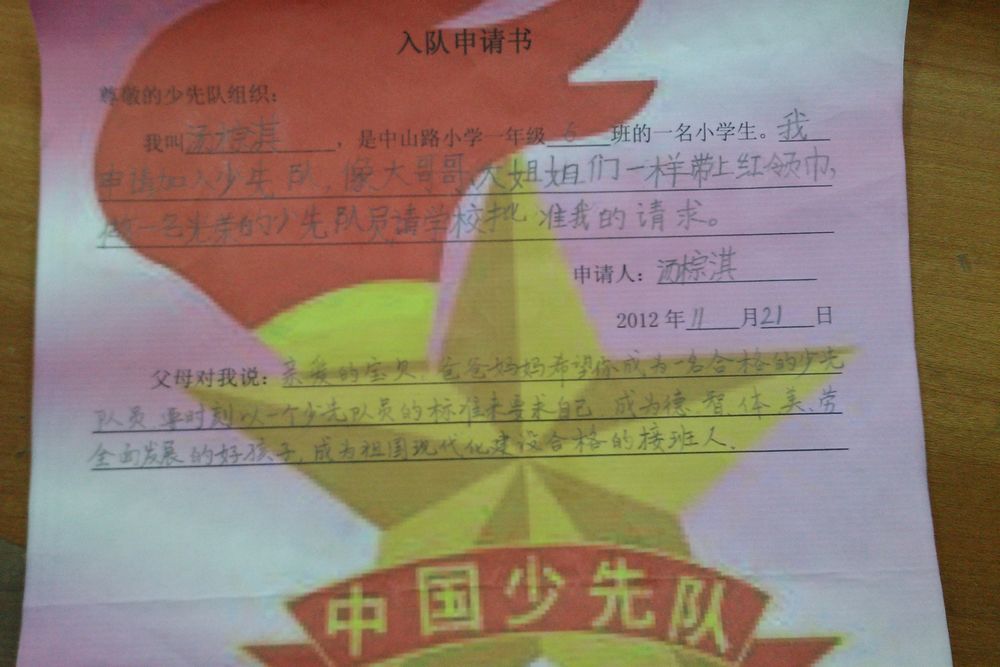 入队申请书
尊敬的少先队组织：
我叫汤棕淇，是中山路小学一年级6班的一名小学生。我
申请加入少先队，像大哥哥、大姐姐们一样带上红领巾，
做一名光荣的少先队员，请学校批准我的请求。
申请人：汤棕淇
2012年11月21日
父母对我说：亲爱的宝贝，爸爸妈妈希望你成为一名合格的少先
队员，要时刻以一个少先队员的标准来要求自己，成为德、智、体、美、劳
全面发展的好孩子，成为祖国现代化建设合格的接班人。
中国少先队